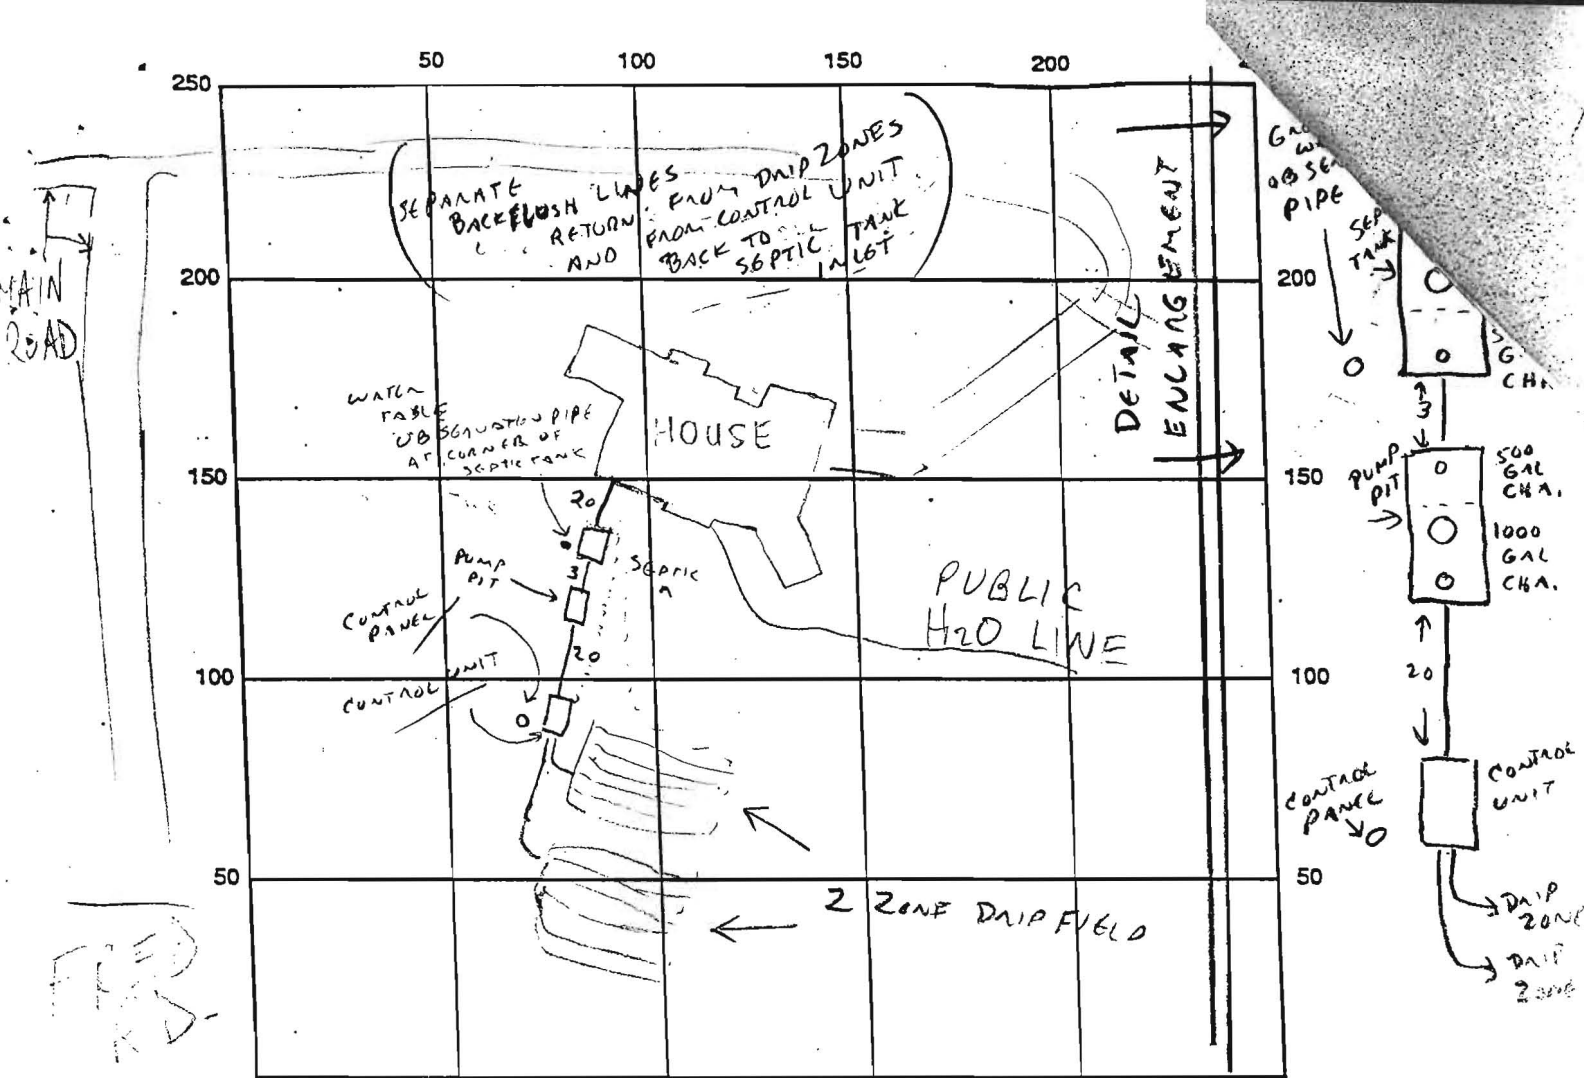 50 100 150 200
250
200 200
150 150
100 100
50 50
SEPARATE
BACKFLUSH LINES
RETURN FROM DRIP ZONES
AND FROM CONTROL UNIT
BACK TO
SEPTIC TANK
INLET
MAIN
ROAD
WATER
TABLE
OBSERVATION PIPE
AT CORNER OF
SEPTIC TANK
HOUSE
20
3
SEPTIC
PUMP
PIT
CONTROL
PANEL
20
CONTROL UNIT
PUBLIC
H2O LINE
2 ZONE DRIP FIELD
DETAIL
ENLARGEMENT
PIPE
3
PUMP
PIT
500
GAL
CHA.
1000
GAL
CHA.
20
CONTROL
UNIT
CONTROL
PANEL
DRIP
ZONE
DRIP
ZONE